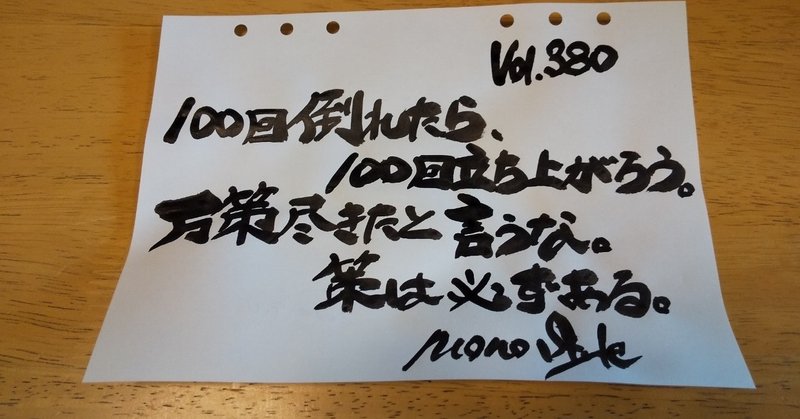 Vol.380
100回倒れたら、
100回立ち上がろう。
万策尽きたと言うな。
策は必ずある。
mono style